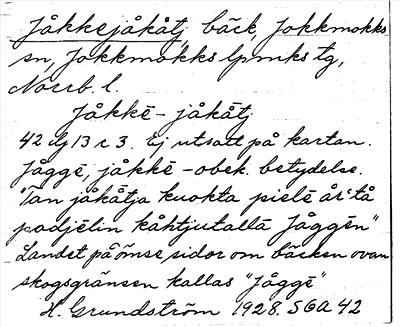 Jåkkejåkåtj bäck, Jokkmokks
sn, Jokkmokks lpmks tg,
Norrb. l.
Jåkkē-jåkåtj
42 dj 13 r 3. Ej utsatt på kartan.
Jåggē, jåkkē - obek. betydelse.
"Tan jåkåtja kuokta pielē år'tå
padjēlin kåhtjutallā Jåggēn"
Landet på ömse sidor om bäcken ovan
skogsgränsen kallas "Jåggē"
H. Grundström 1928. SOA 42